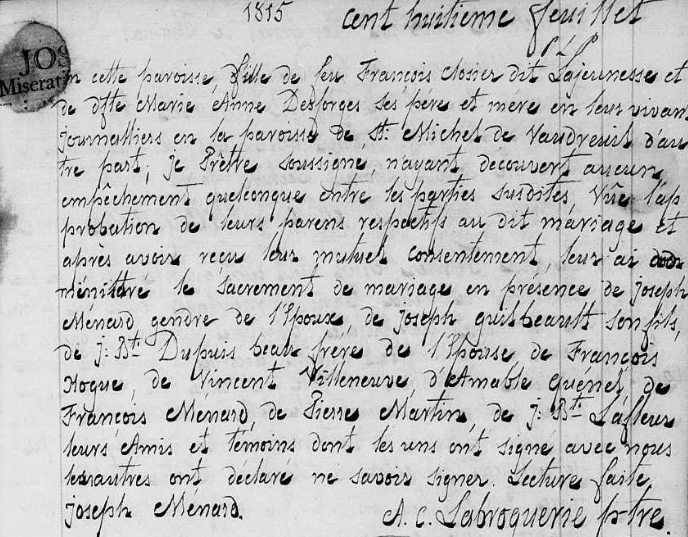 1815 cent huitieme feuillet
JOS
Miserat
en cette paroisse, fille de feu François Closier dit Lajeunesse et
de dfte Marie Anne Desforges ses père et mere en leur vivant
journalliers en la paroisse de St: Michel de Vaudreuil d'au
tre part; je Prêtre soussigné, n'ayant decouvert aucun
empêchement quelconque entre les parties susdites, Vûe l'ap
probation de leurs parens respectifs au dit mariage et
après avoir reçu leur mutuel consentement, leur ai ad
ménistré le sacrement de mariage en présence de joseph
Ménard gendre de l'Epoux, de joseph guilbeault son fils,
de j: Bte Dupuis beau frére de l'Epouse, de François
Hogue, de Vincent Villeneuve, d'Amable quenel, de
François Ménard, de Pierre Martin, de j: Bte Lafleur
leurs Amis et témoins dont les uns ont signé avec nous
les autres ont déclaré ne savoir signer. Lecture faite,
joseph Ménard. A. C. Labroquerie ptre.